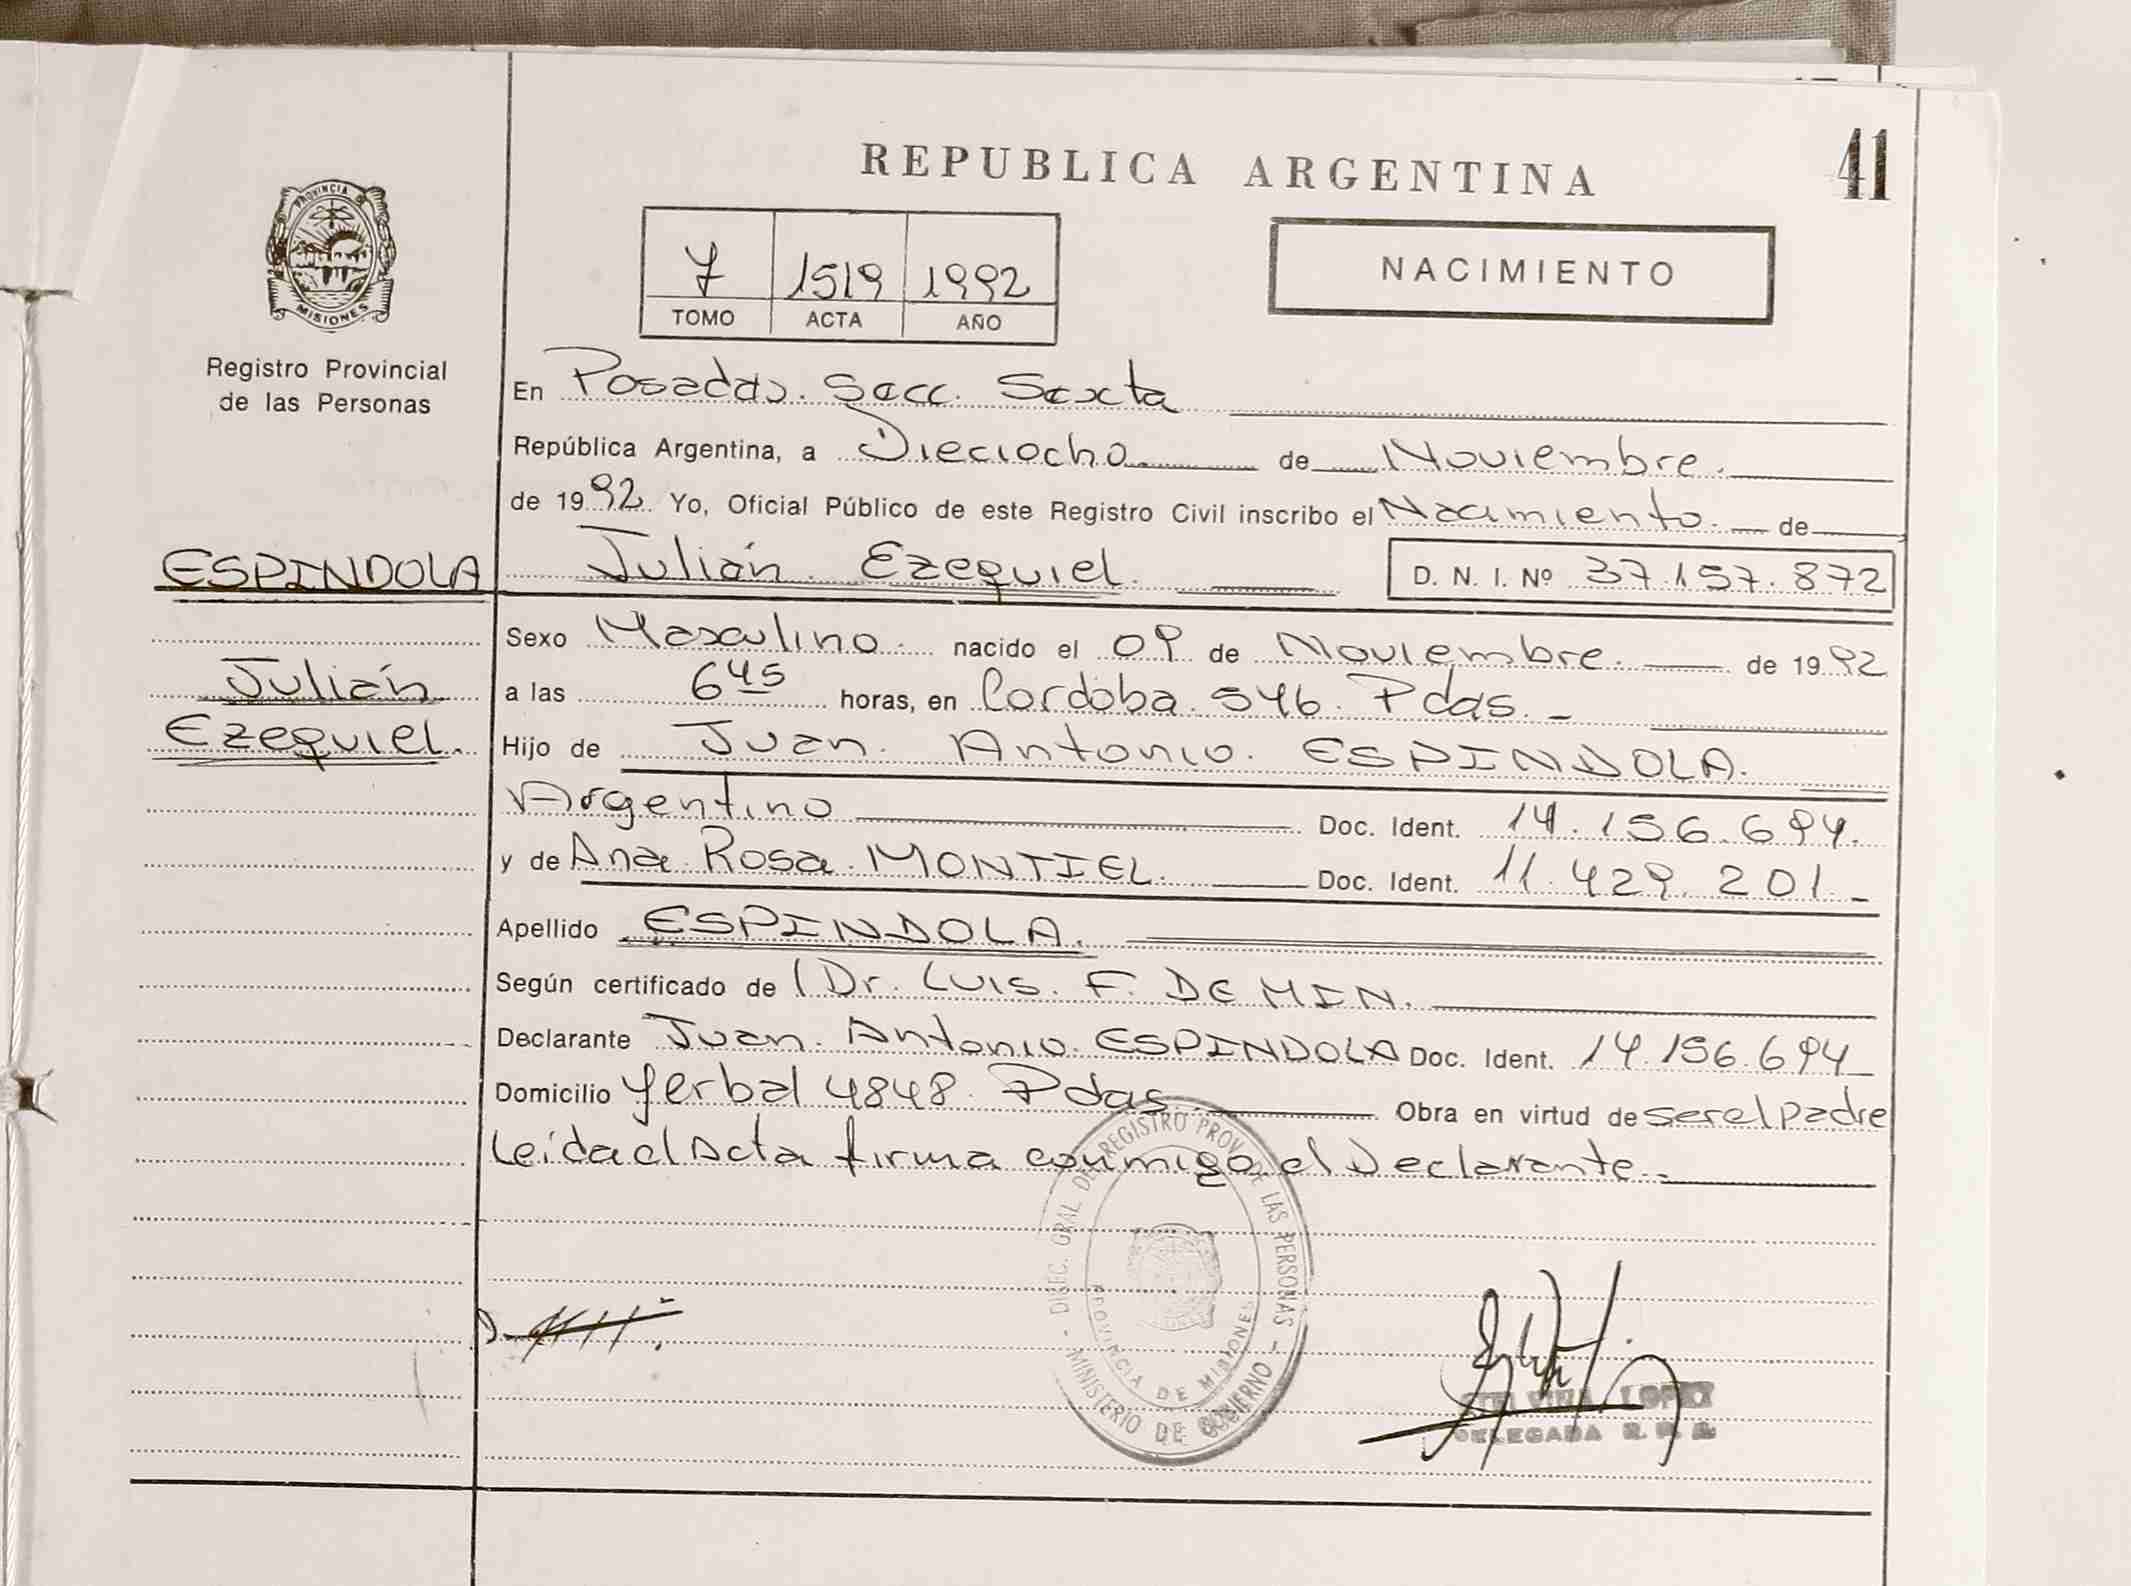 41
REPUBLICA ARGENTINA
PROVINCIA DE
MISIONES
Registro Provincial
de las Personas
7 1519 1992
TOMO ACTA AÑO
NACIMIENTO
En Posadas. Secc. Sexta
República Argentina, a Dieciocho de Noviembre.
de 1992 Yo, Oficial Público de este Registro Civil inscribo el Nacimiento. de
ESPINDOLA Julián Ezequiel. D. N. I. Nº 37.157.872
Sexo Masculino. nacido el 09 de Noviembre. de 1992
Julián
a las 6 45 horas, en Cordoba. 546. Pdas.
Ezequiel. Hijo de Juan. Antonio. ESPINDOLA.
Argentino Doc. Ident. 14.156.694.
y de Ana Rosa MONTIEL. Doc. Ident. 11.429.201.
Apellido ESPINDOLA.
Según certificado de Dr. Luis. F. DE MIN.
Declarante Juan. Antonio. ESPINDOLA Doc. Ident. 14.156.694
Domicilio Yerbal 4848. Pdas. Obra en virtud de ser el padre
Leida el Acta firma conmigo el Declarante.
DIREC. GRAL DEL REGISTRO PROV. DE LAS PERSONAS
- MINISTERIO DE GOBIERNO -
PROVINCIA DE MISIONES
LOPEZ
DELEGADA R. P.